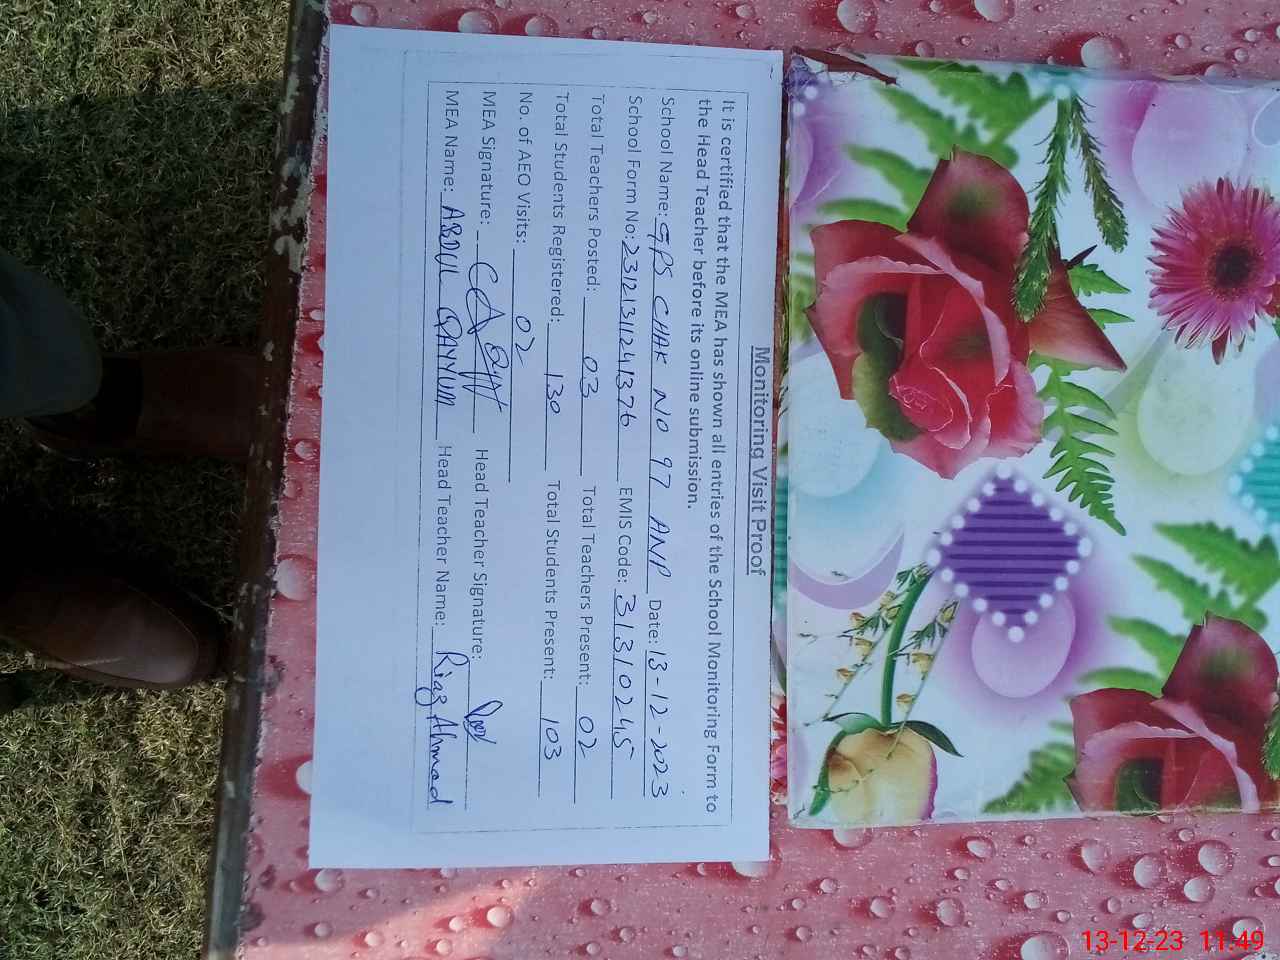 Monitoring Visit Proof
It is certified that the MEA has shown all entries of the School Monitoring Form to
the Head Teacher before its online submission.
School Name: GPS CHAK NO 97 ANP Date: 13-12-2023
School Form No: 23121311241376 EMIS Code: 31310245
Total Teachers Posted: 03 Total Teachers Present: 02
Total Students Registered: 130 Total Students Present: 103
No. of AEO Visits: 02
MEA Signature: Head Teacher Signature:
MEA Name: ABDUL QAYYUM Head Teacher Name: Riaz Ahmad
13-12-23 11:49